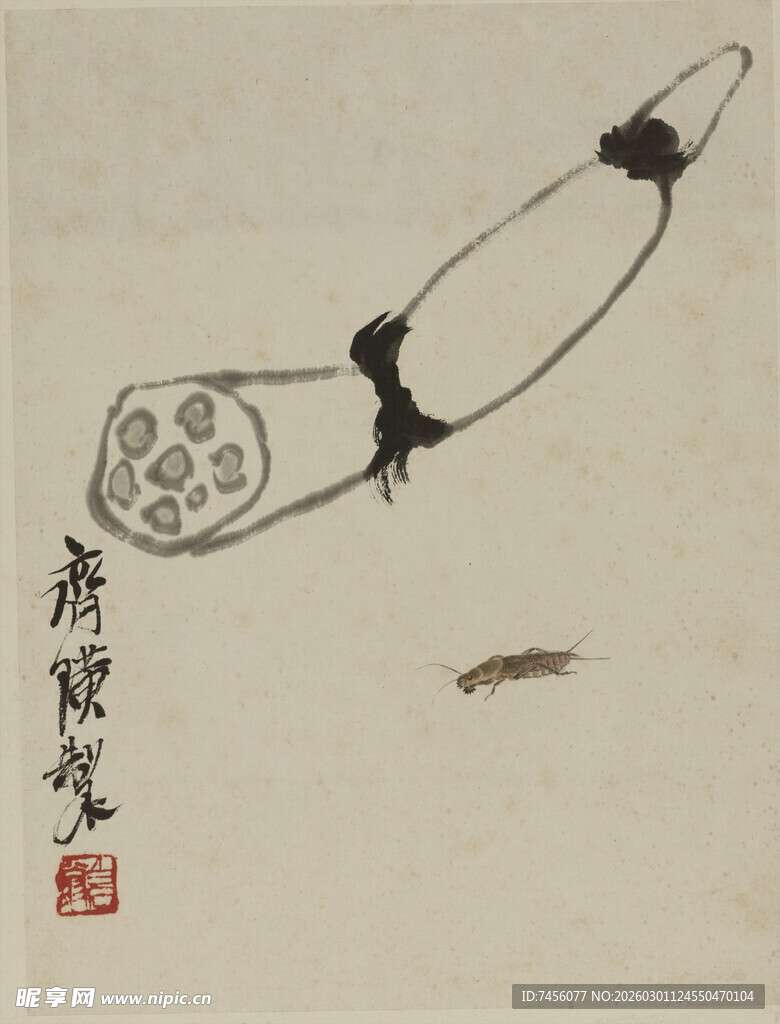 齊璜製
昵享网 www.nipic.cn
ID:7456077 NO:20260301124550470104